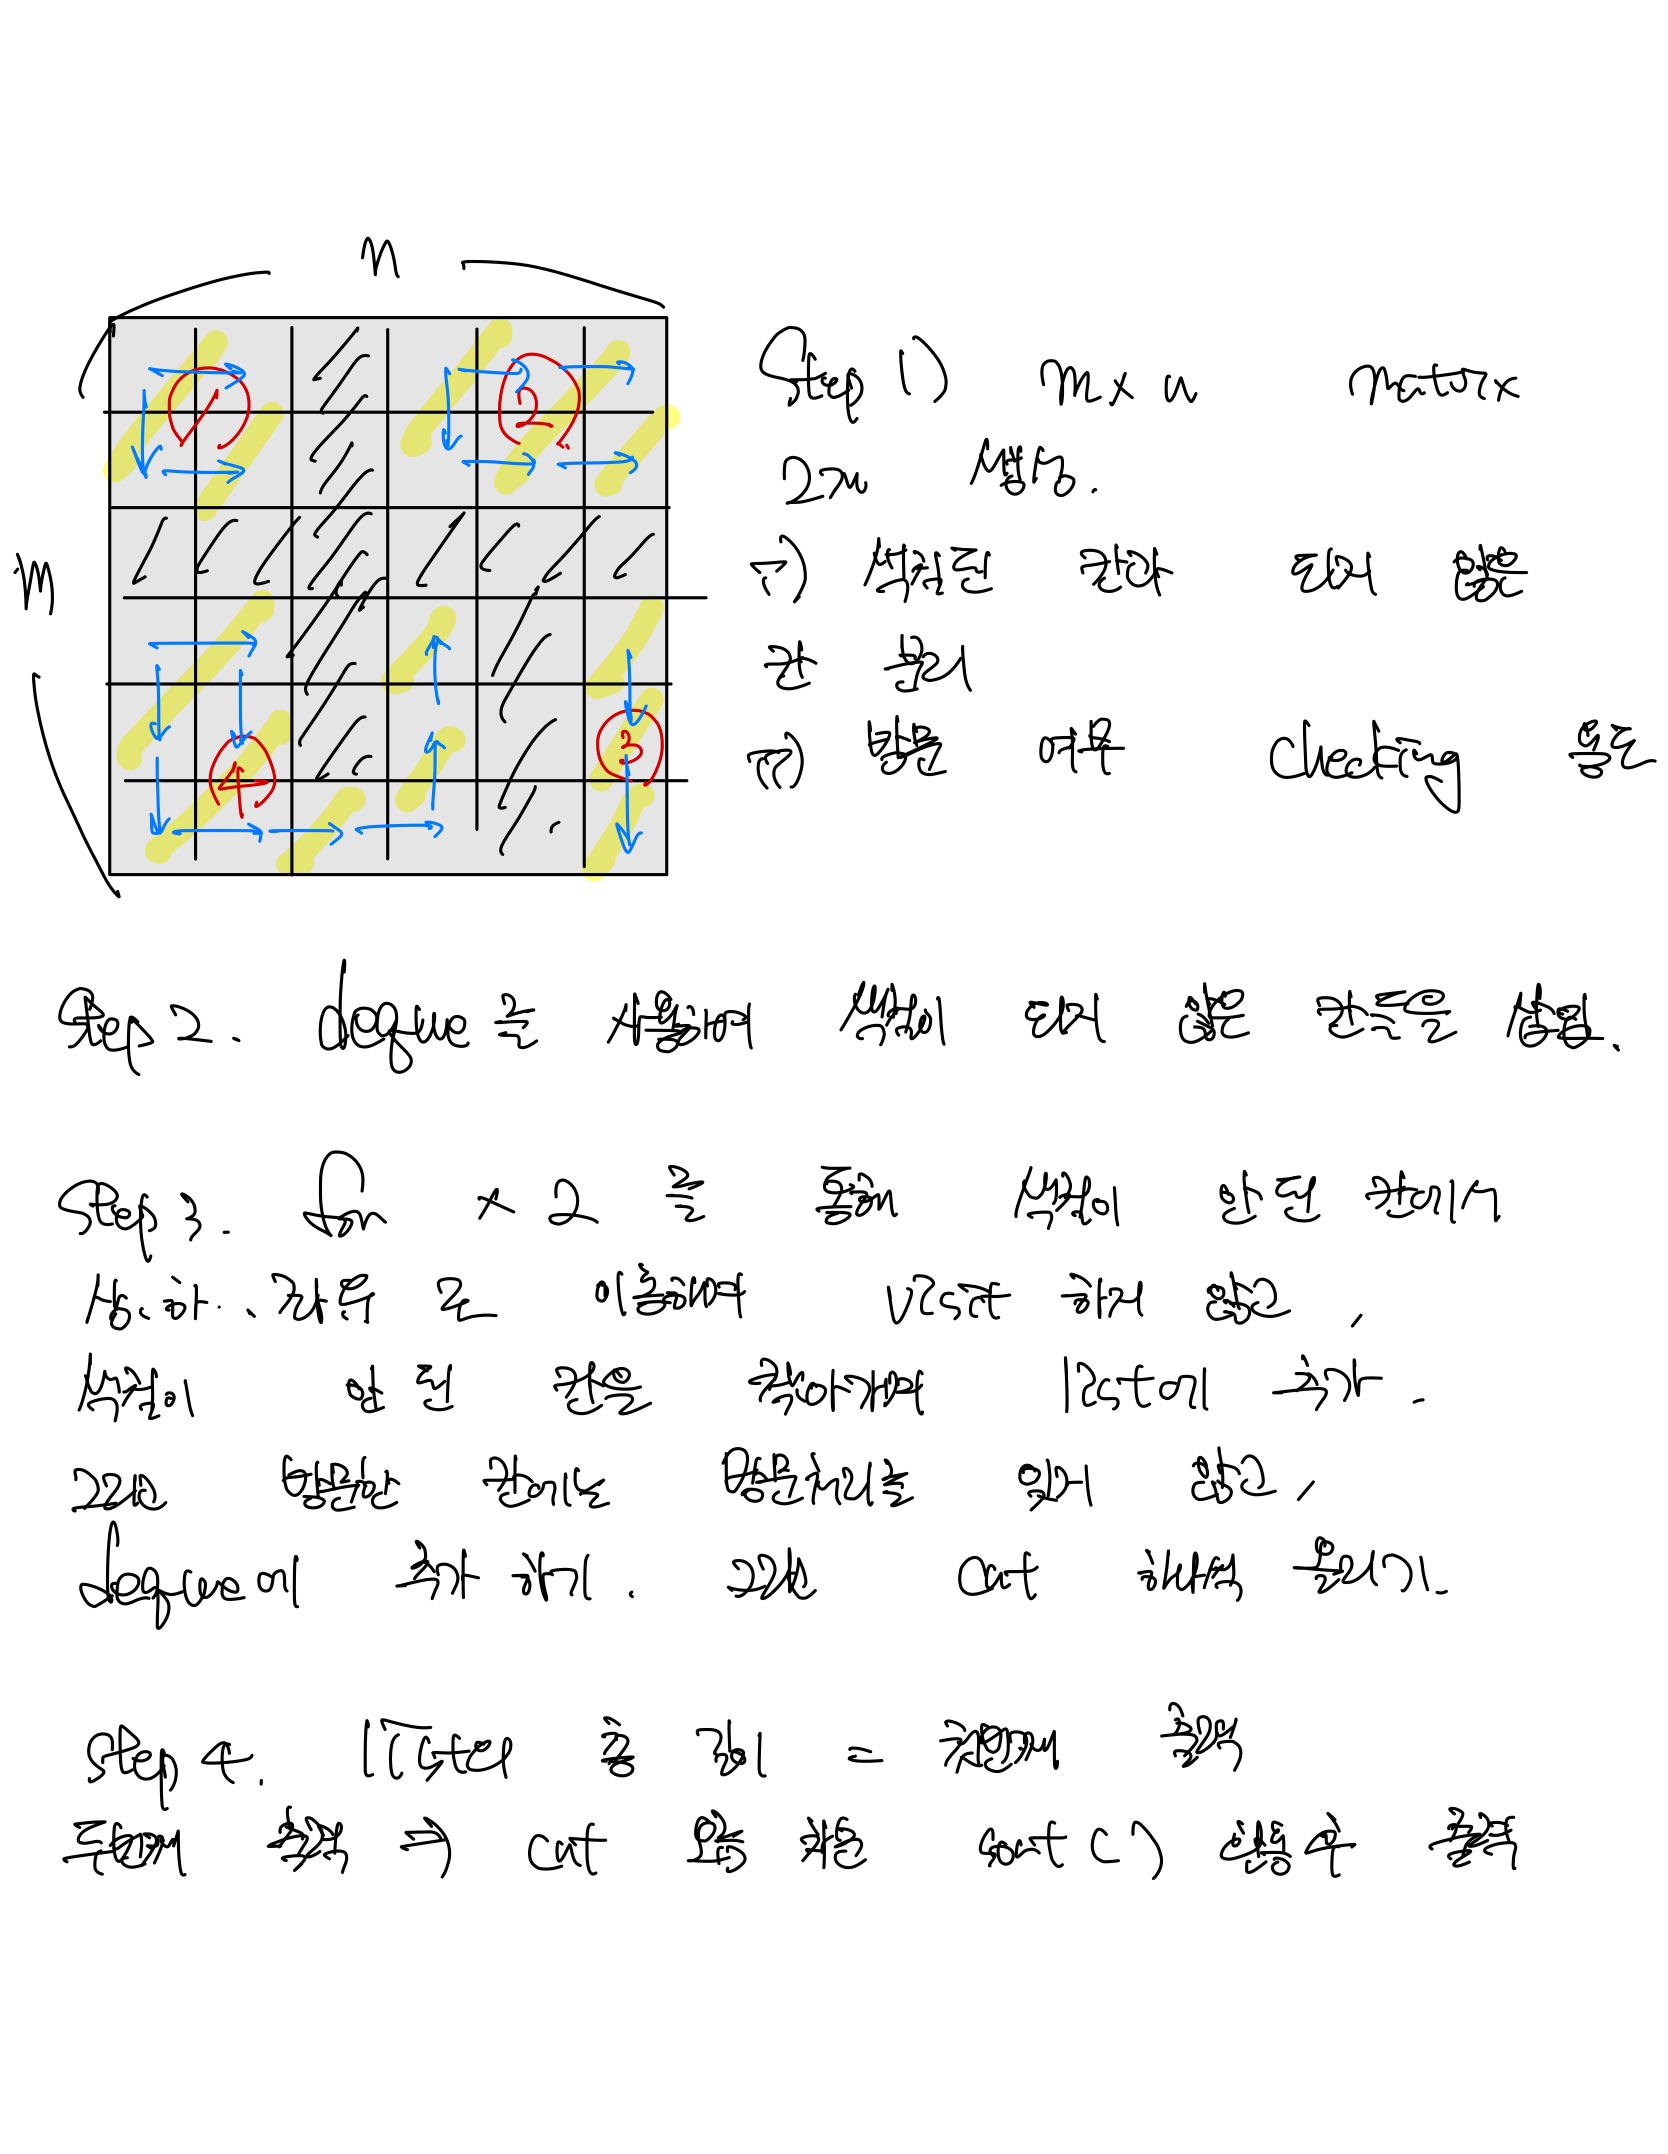 n
m
1
2
3
4
Step 1) m x n matrix
2개 생성.
ㄱ) 색칠된 칸과 되지 않은
칸 분리
ㄱㄱ) 방문 여부 checking 용도
Step 2. deque를 사용하여 색칠이 되지 않은 칸들을 삽입.
Step 3. for x 2 를 통해 색칠이 안 된 칸에서
상.하.、좌우 로 이동하며 visit 하지 않고,
색칠이 안 된 칸을 찾아가며 list에 추가.
그리고 방문한 칸에는 방문처리를 잊지 않고,
deque에 추가 하기. 그리고 cnt 하나씩 올리기.
Step 4. list의 총 길이 = 첫번째 출력
두번째 출력 ⇒ cnt 모음 sort() 출력